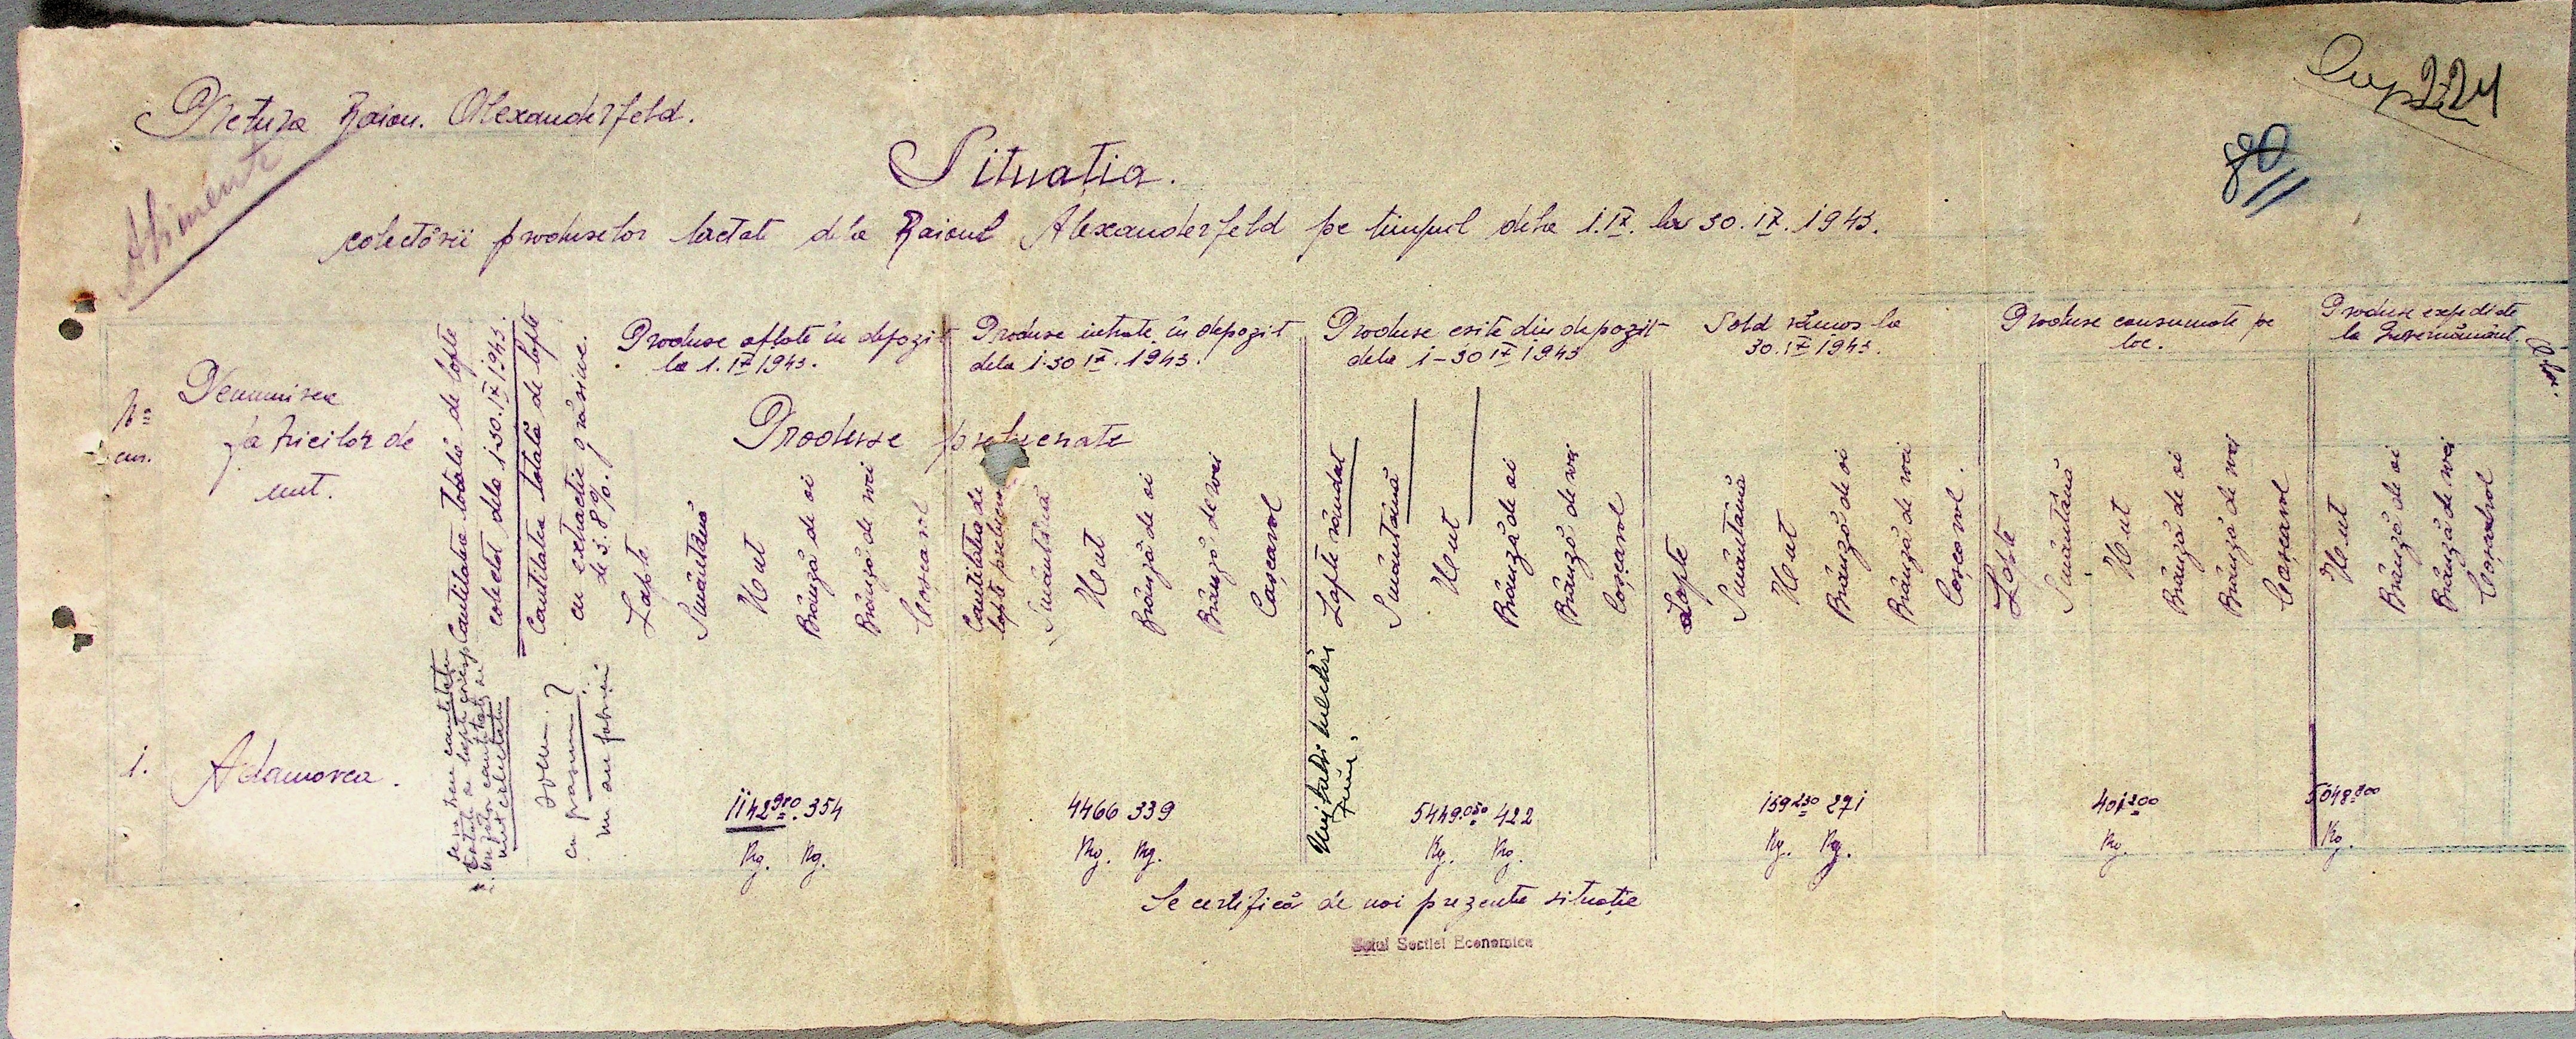 Pretura Raion. Alexanderfeld.
Alimente
224
80
Situația.
colectării produselor lactate dela Raionul Alexanderfeld pe timpul dela 1.IX. la 30.IX.1943.
No cur.
Denumirea
fabricilor de
unt.
Cantitatea totală de lapte
colectat dela 1-30.IX 1943.
Cantitatea totală de lapte
cu extractie grăsime.
de 3.8%.
Produse aflate în depozit
la 1.IX 1943.
Produse intrate în depozit
dela 1-30 IX. 1943.
Produse esite din depozit
dela 1-30 IX 1943
Sold rămas la
30.IX 1943.
Produse consumate pe
loc.
Produse expediate
la
Produse prelucrate
Lapte
Smântână
Unt
Brânză de oi
Brânză de vaci
Cașcaval
Cantitatea de
lapte
Smântână
Unt
Brânză de oi
Brânză de vaci
Cașcaval
Lapte vândut
Smântână
Unt
Brânză de oi
Brânză de vaci
Cașcaval
Lapte
Smântână
Unt
Brânză de oi
Brânză de vaci
Cașcaval.
Lapte
Smântână
Unt
Brânză de oi
Brânză de vaci
Cașcaval
Unt
Brânză de oi
Brânză de vaci
Cașcaval
1. Adamovca. 1142 980. 354 4466 339 5449.050 422 159 230 271 401 200 5048.800
Kg. Kg. Kg. Kg. Kg. Kg. Kg. Kg. Kg. Kg.
Se certifică de noi prezenta situație
Șeful Sectiei Economice